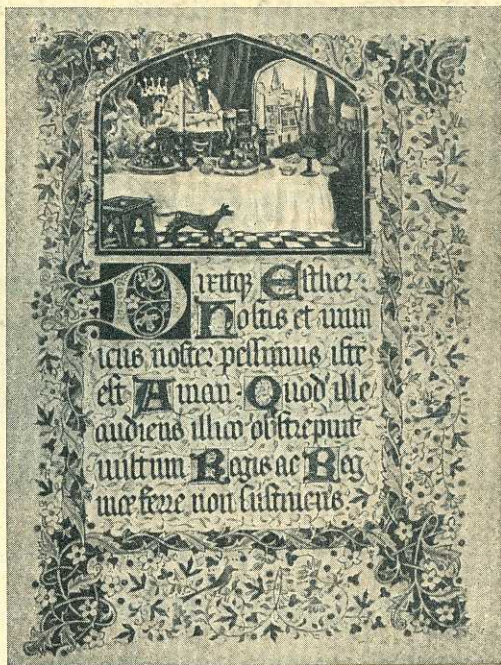 Dixitqꝫ Esther:
Hostis et inim
icus noster pessimus iste
est Aman: Quod ille
audiens illico obstrepuit
vultum Regis ac Reg
inæ ferre non sustinens.